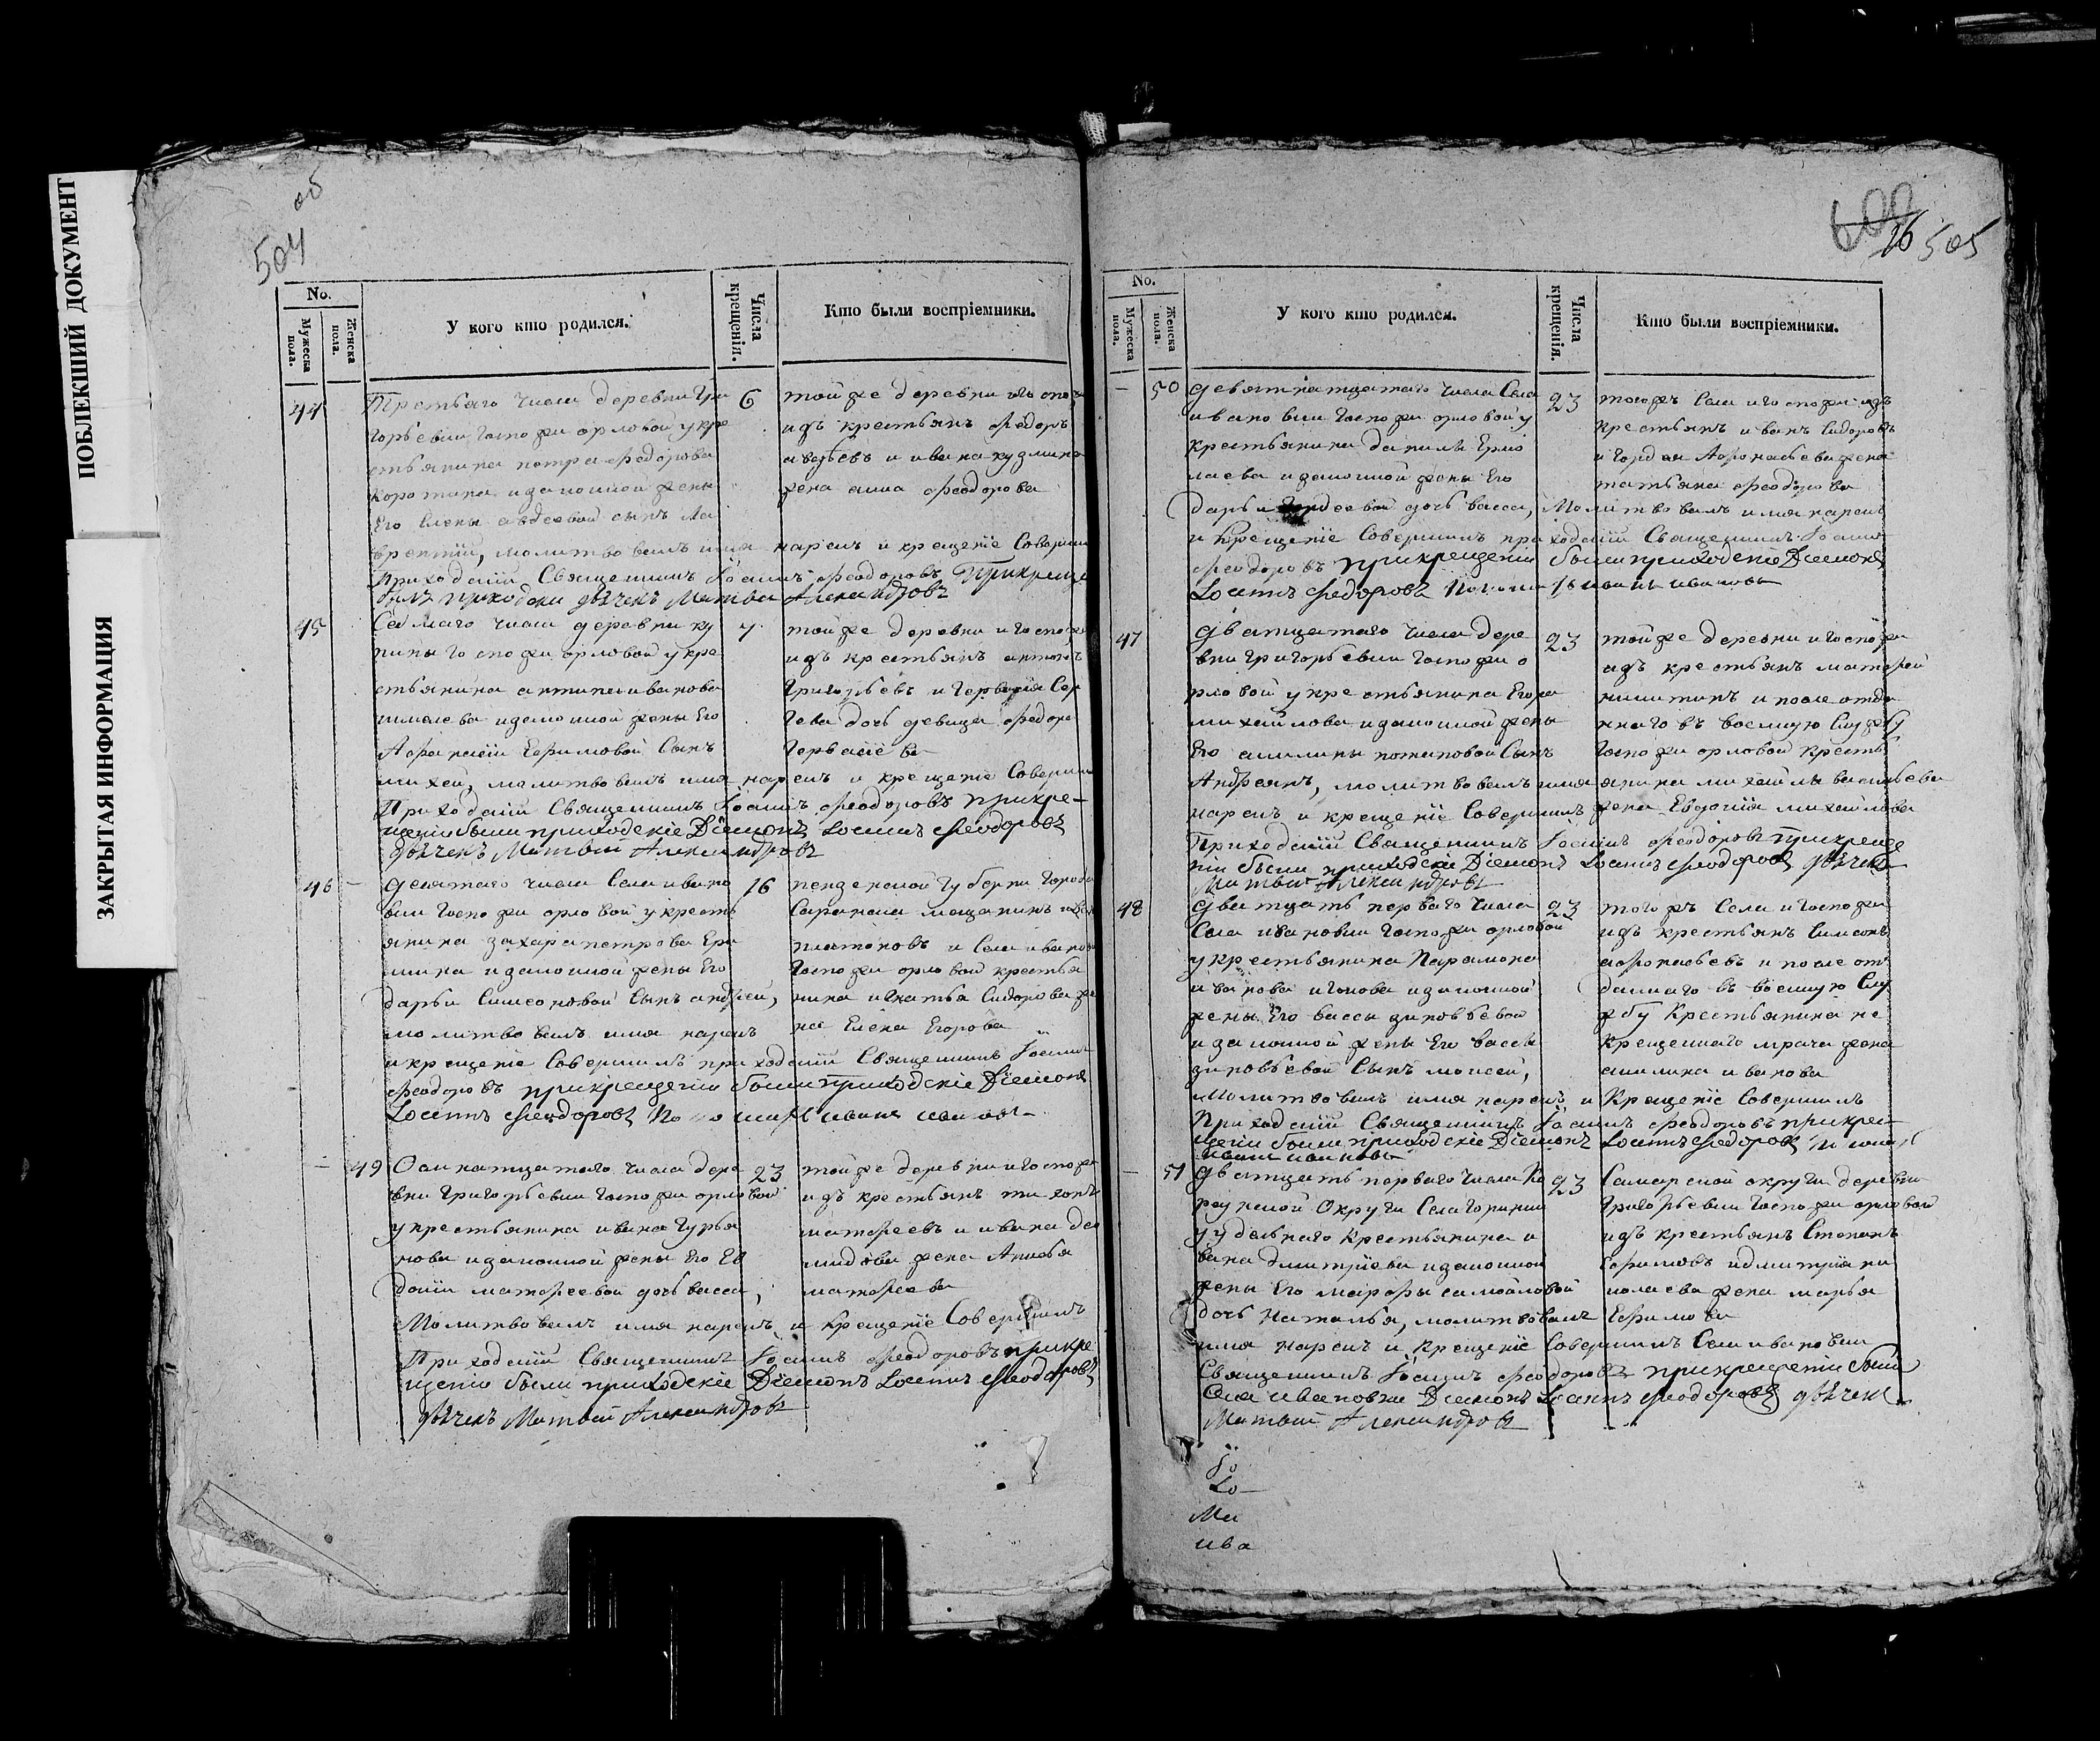 ПОБЛЕКШИЙ ДОКУМЕНТ
ЗАКРЫТАЯ ИНФОРМАЦИЯ
504 об
No.
Мужеска пола.
Женска пола.
У кого кто родился.
Числа крещенія.
Кто были воспріемники.
44
6
Третьяго числа деревни Гри
горьевки госпожи орловой у кре
стьянина петра федорова
коротина и законной жены
Его Елены авдеевой сынъ Ла
врентій, молитвовалъ имя нарекъ и крещеніе Соверши
Приходскій Священникъ Іоаннъ феодоровъ Прикреще
былъ приходски дьячекъ Матвеи Александровъ
той же деревни и госпожи
изъ крестьянъ федоръ
авдѣевъ и ивана кузмина
жена анна феодорова
45
7
Седмаго числа деревни ку
пины госпожи орловой у кре
стьянина антипы иванова
шмелева и законной жены Его
Афанасіи Ефимовой Сынъ
михей, молитвовалъ имя нарекъ и крещеніе Соверши
Приходскій Священникъ Іоаннъ феодоровъ прикре-
щеніи были приходскіе Діаконъ Іоаннъ Феодоровъ
дьячекъ Матвей Александровъ
той же деревни и госпожи
изъ крестьянъ антонъ
Григорьевъ и Гервасія Сер
геева дочь девица федора
Гервасіева
46
16
Десятаго числа Села ивано
вки госпожи орловой у кресть
янина захара петрова Ере
мина и законной жены Его
дарьи Симеоновой Сынъ андрей,
молитвовалъ имя нарекъ
и крещеніе Совершилъ приходскій Священникъ Іоаннъ
феодоровъ прикрещеніи были приходскіе Діаконъ
Іоаннъ Феодоровъ Пономарь иванъ ивановъ
пензенской Губерни Города
Саранска мещанинъ
платоновъ и Села ивановки
Госпожи орловой крестья
нина игнатья Сидорова же
на Елена Егорова
49
23
Осмнатцатаго числа дере
вни Григорьевки госпожи орловой
у крестьянина ивана Гурья
нова и законной жены Его Ев
докіи матфеевой дочь васса,
Молитвовалъ имя нарекъ и крещеніе Совершилъ
Приходскій Священникъ Іоаннъ феодоровъ прикре
щеніи были приходскіе Діаконъ Іоаннъ Феодоровъ
дьячекъ Матвей Александровъ
той же деревни и госпожи
изъ крестьянъ тихонъ
матфеевъ и ивана де
мидова жена Анисья
матфеева
505
No.
Мужеска пола.
Женска пола.
У кого кто родился.
Числа крещенія.
Кто были воспріемники.
50
23
Девятнатцатаго числа Села
ивановки госпожи орловой у
крестьянина данилы Ермо
лаева и законной жены Его
дарьи Гордеевой дочь васса, Молитвовалъ имя нарекъ
и Крещеніе Совершилъ приходскій Священникъ Іоаннъ
феодоровъ прикрещеніи были приходскіе Діаконъ
Іоаннъ Феодоровъ Пономарь иванъ ивановъ
тогожъ Села и госпожи изъ
крестьянъ иванъ Сидоровъ
и Гордея Афонасьева жена
татьяна феодорова
47
23
Дватцатаго числа дере
вни Григорьевки госпожи о
рловой у крестьянина Егора
михайлова и законной жены
Его акилины потаповой Сынъ
Андреянъ, молитвовалъ имя
нарекъ и крещеніе Совершилъ
Приходскій Священникъ Іоаннъ феодоровъ прикреще
ніи были приходскіе Діаконъ Іоаннъ Феодоровъ дьячекъ
Матвей Александровъ
той же деревни и госпожи
изъ крестьянъ матфей
никитинъ и после отда
ннаго въ военную Службу
госпожи орловой кресть
янина михайлы васильева
жена Евдокія михайлова
48
23
Дватцать перваго числа
Села ивановки госпожи орловой
у крестьянина Парамона
иванова и законной
жены Его вассы зиновьевой
и законной жены Его вассы
зиновьевой Сынъ моисей,
Молитвовалъ имя нарекъ и Крещеніе Совершилъ
Приходскій Священникъ Іоаннъ феодоровъ прикре
щеніи были приходскіе Діаконъ Іоаннъ Феодоровъ
иванъ ивановъ
тогожъ Села и госпожи
изъ крестьянъ Симеонъ
афонасьевъ и после от
даннаго въ военную Слу
жбу Крестьянина не
крещеннаго жена
акилина иванова
51
23
Дватцать перваго числа
Округи Села
удельнаго крестьянина и
вана дмитріева и законной
жены Его марфы самойловой
дочь Наталья, молитвовалъ
имя нарекъ и крещеніе Совершилъ Села ивановки
Священникъ Іоаннъ феодоровъ прикрещеніи были
Села ивановки Діаконъ Іоаннъ Феодоровъ дьячекъ
Матвей Александровъ
Самарской округи деревни
Григорьевки госпожи орловой
изъ крестьянъ Степанъ
Ефимовъ и дмитрія ни
колаева жена марья
Ефимова
Іо
Іо
Ма
ива